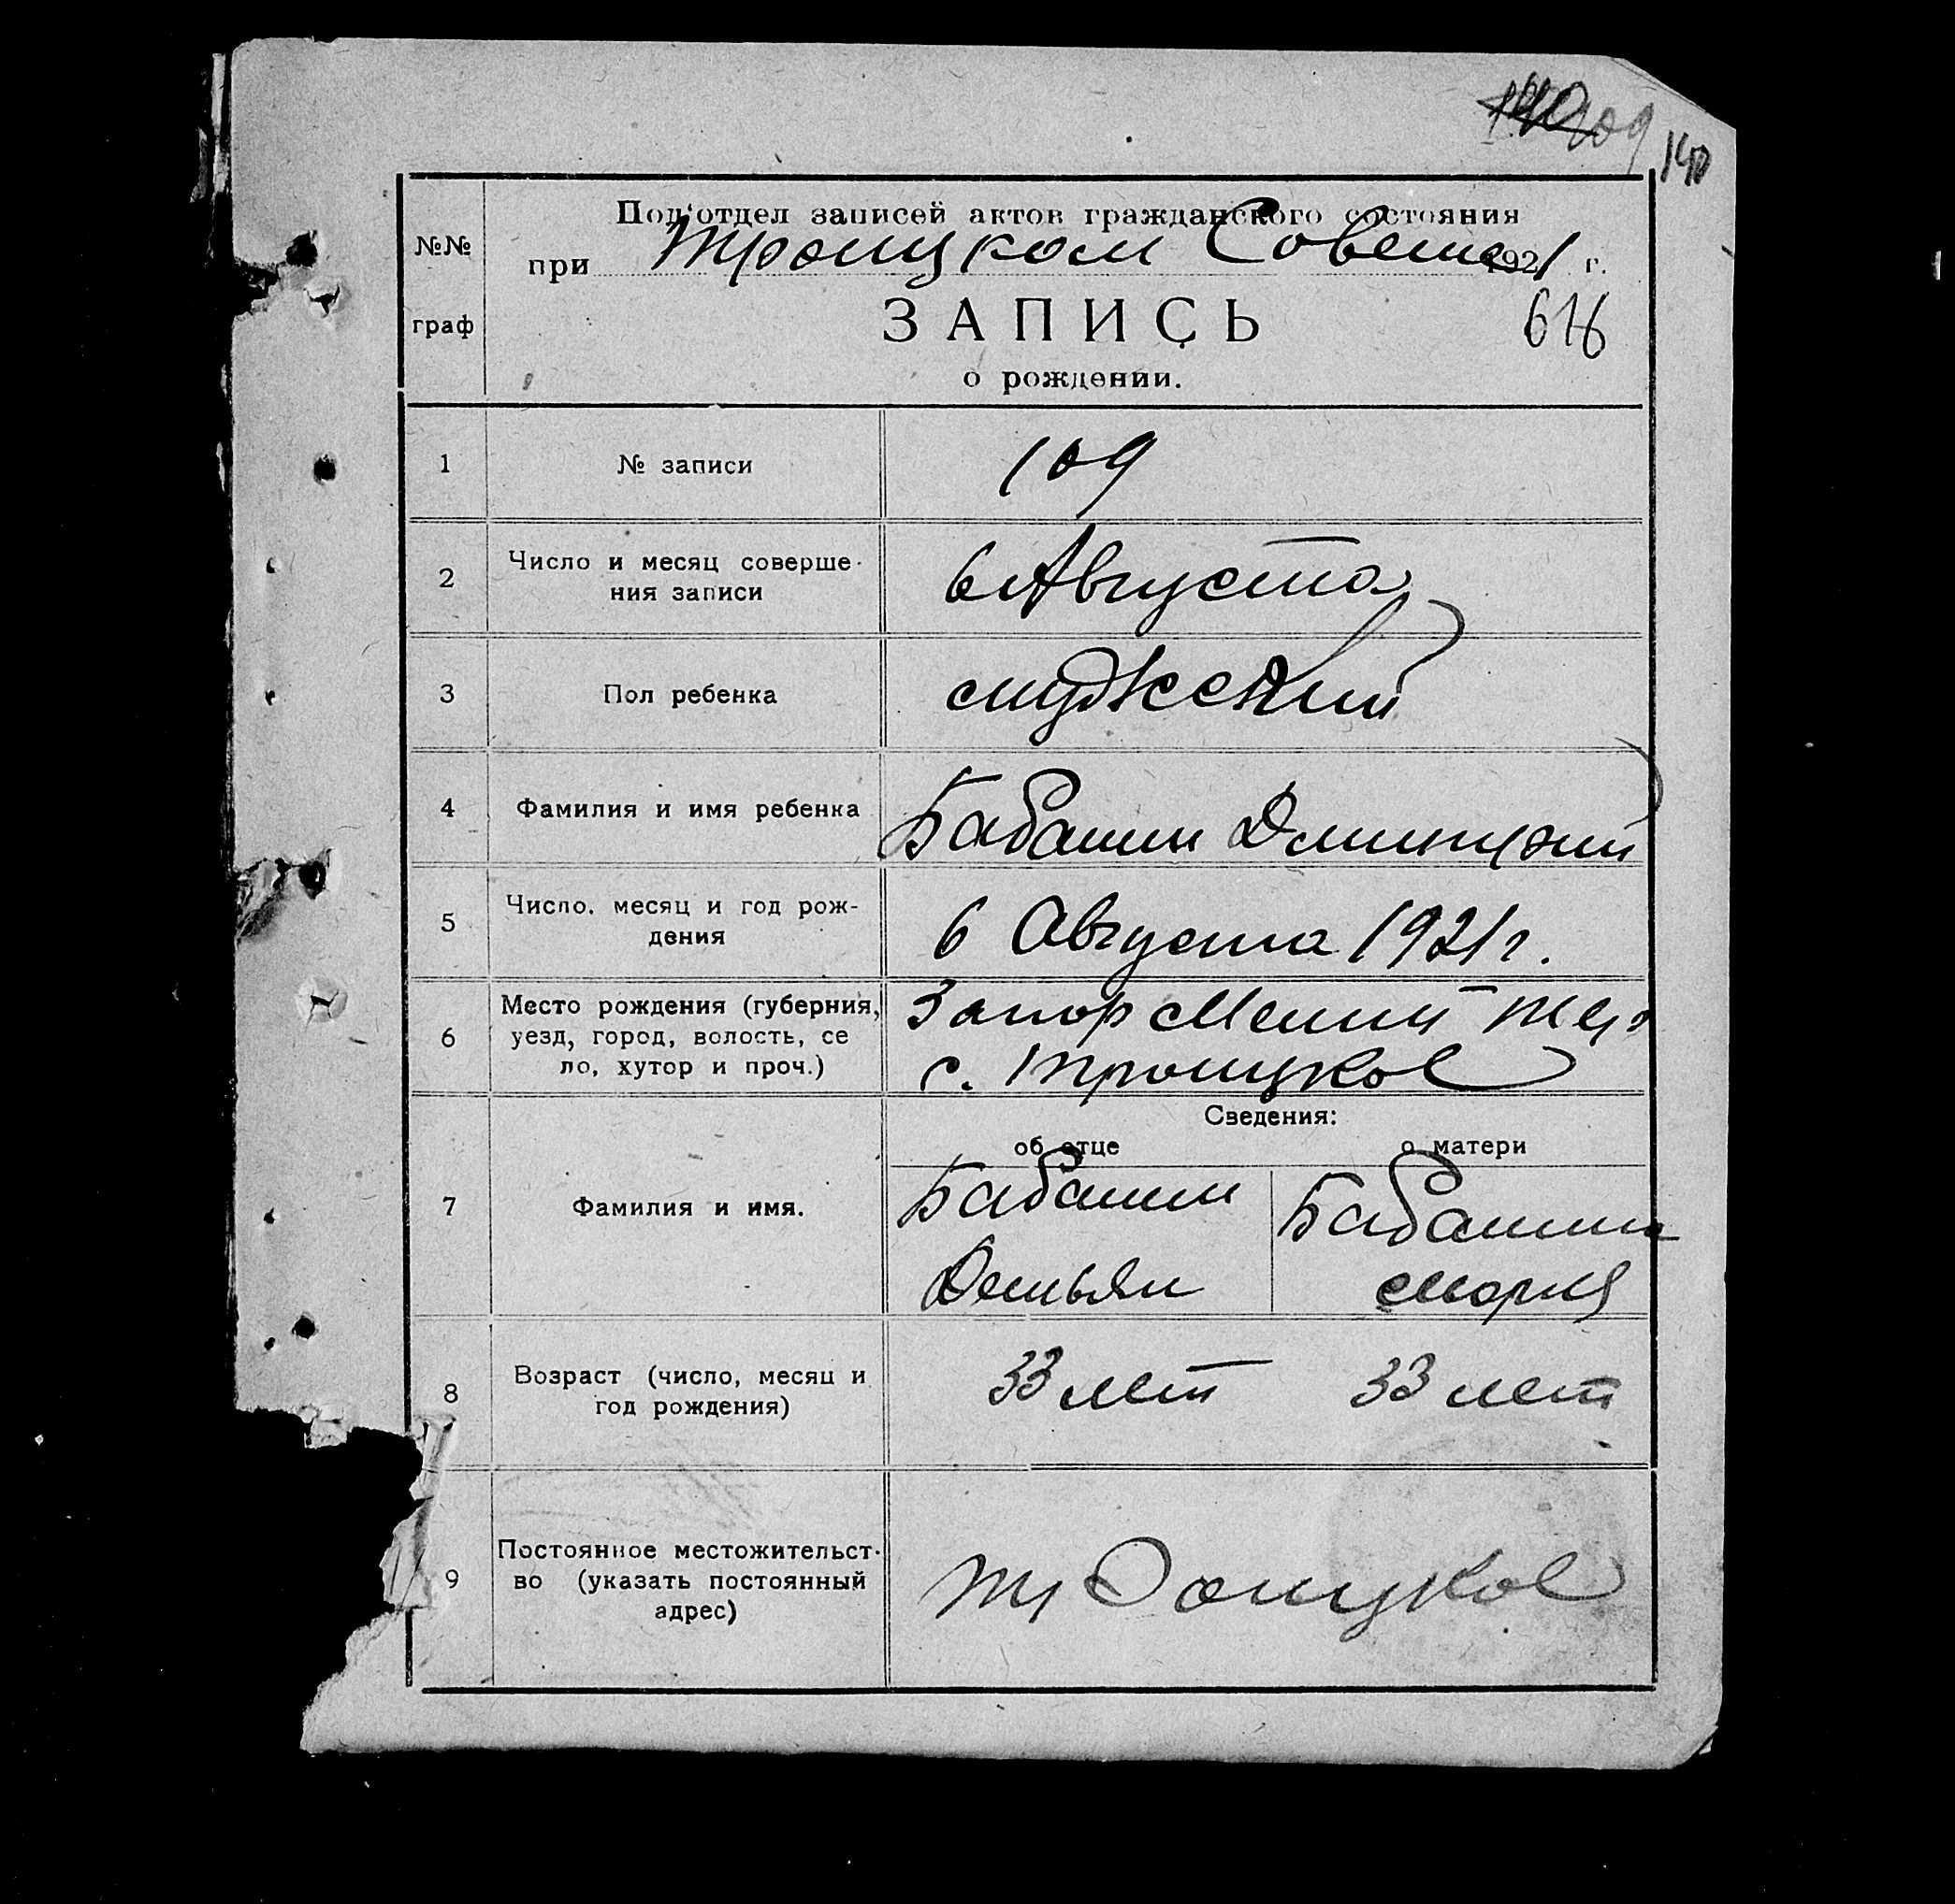 140 109 140
Под'отдел записей актов гражданского состояния
№№ при Троицком Совете 1921 г.
граф ЗАПИСЬ 616
о рождении.
1 № записи 109
2 Число и месяц соверше-
ния записи 6 Августа
3 Пол ребенка мужеский
4 Фамилия и имя ребенка Бабанин Дмитрий
5 Число, месяц и год рож-
дения 6 Августа 1921 г.
6 Место рождения (губерния, Запор
уезд, город, волость, се
ло, хутор и проч.) с. Троицкое
Сведения:
об отце о матери
7 Фамилия и имя. Бабанин Бабанина
Демьян Мария
8 Возраст (число, месяц и 33 лет 33 лет
год рождения)
9 Постоянное местожительст-
во (указать постоянный Троицкое
адрес)